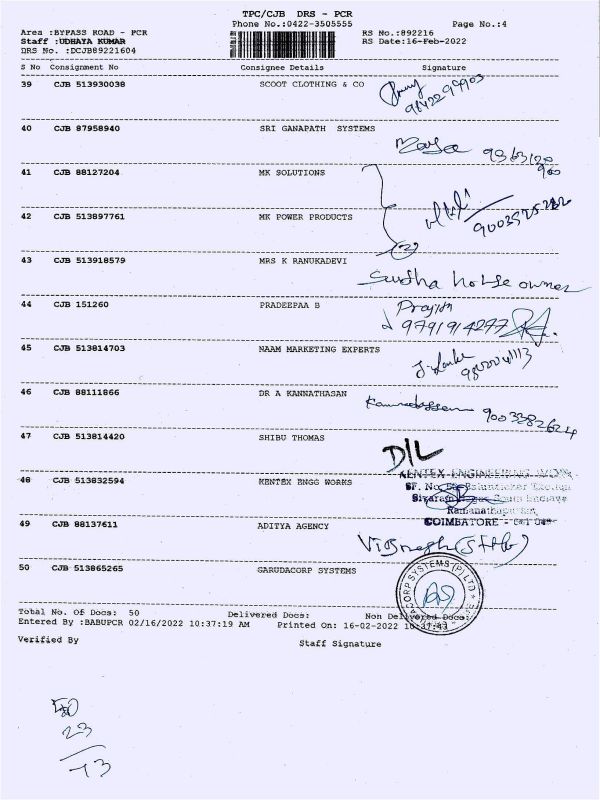 TPC/CJB DRS - PCR
Phone No.:0422-3505555 Page No.:4
Area :BYPASS ROAD - PCR RS No.:892216
Staff :UDHAYA KUMAR RS Date:16-Feb-2022
DRS No. :DCJB89221604
S No Consignment No Consignee Details Signature
39 CJB 513930038 SCOOT CLOTHING & CO
40 CJB 87958940 SRI GANAPATH SYSTEMS
41 CJB 88127204 MK SOLUTIONS
42 CJB 513897761 MK POWER PRODUCTS
43 CJB 513918579 MRS K RANUKADEVI
house owner
44 CJB 151260 PRADEEPAA B
9791914277
45 CJB 513814703 NAAM MARKETING EXPERTS
46 CJB 88111866 DR A KANNATHASAN
9003382624
47 CJB 513814420 SHIBU THOMAS
D/L
48 CJB 513832594 KENTEX ENGG WORKS
KENTEX ENGINEERING WORKS
COIMBATORE
49 CJB 88137611 ADITYA AGENCY
50 CJB 513865265 GARUDACORP SYSTEMS
Total No. Of Docs: 50 Delivered Docs: Non Delivered Docs:
Entered By :BABUPCR 02/16/2022 10:37:19 AM Printed On: 16-02-2022 10:37:43
Verified By Staff Signature
50
23
73